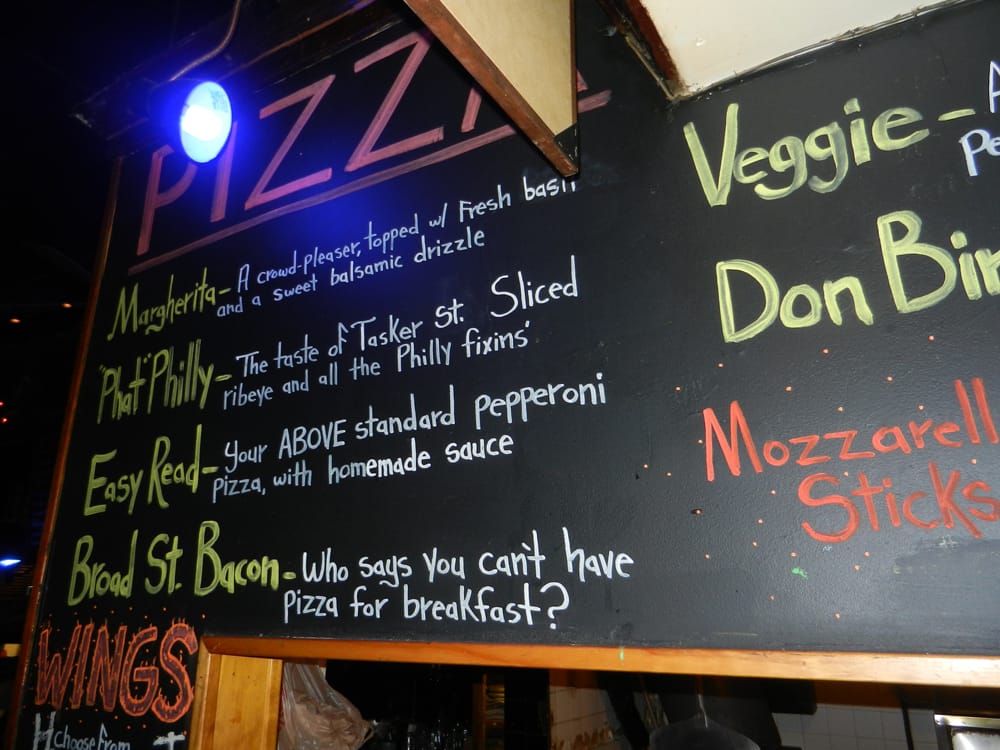 PIZZA
Margherita - A crowd-pleaser, topped w/ Fresh basil
and a sweet balsamic drizzle
"Phat" Philly - The taste of Tasker St. Sliced
ribeye and all the Philly fixins'
Easy Read - Your ABOVE standard pepperoni
pizza, with homemade sauce
Broad St. Bacon - Who says you can't have
pizza for breakfast?
WINGS
choose from
Veggie - A
Pe
Don Bir
Mozzarell
Sticks